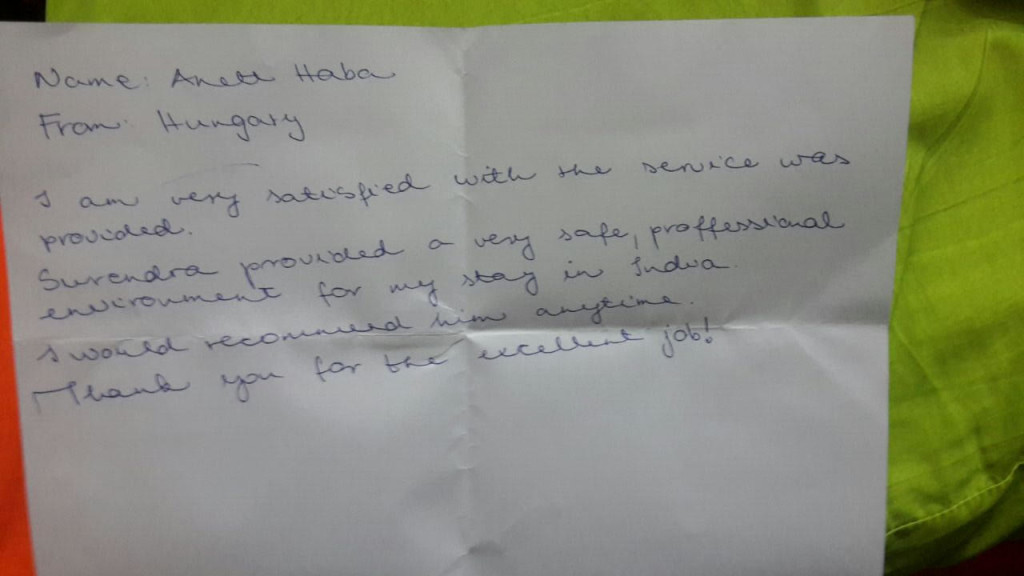 Name: Anett Haba
From: Hungary
I am very satisfied with the service was
provided.
Surendra provided a very safe, proffessional
environment for my stay in India.
I would recommend him anytime.
Thank you for the excellent job!